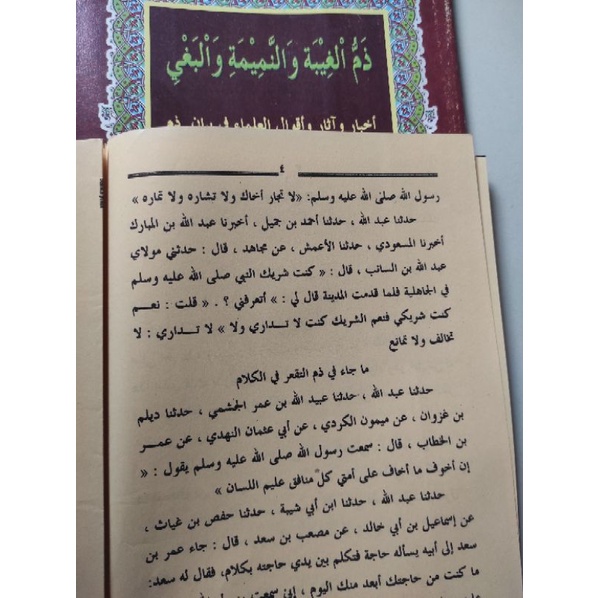 ذَمُّ الْغِيبَة وَالنَّمِيمَةِ وَالْبَغْيِ
أخبار وآثار وأقوال العلماء في بيان
٤
رسول الله صلى الله عليه وسلم: «لا تجار أخاك ولا تشاره ولا تماره »
حدثنا عبد الله ، حدثنا أحمد بن جميل ، أخبرنا عبد الله بن المبارك
أخبرنا المسعودي ، حدثنا الأعمش ، عن مجاهد ، قال : حدثني مولاي
عبد الله بن السائب ، قال : « كنت شريك النبي صلى الله عليه وسلم
في الجاهلية فلما قدمت المدينة قال لي : » أتعرفني ؟ . « قلت : نعم
كنت شريكي فنعم الشريك كنت لا تداري ولا » لا تداري : لا
تخالف ولا تمانع
ما جاء في ذم التقعر في الكلام
حدثنا عبد الله ، حدثنا عبيد الله بن عمر الجشمي ، حدثنا ديلم
بن غزوان ، عن ميمون الكردي ، عن أبي عثمان النهدي ، عن عمر
بن الخطاب ، قال : سمعت رسول الله صلى الله عليه وسلم يقول : «
إن أخوف ما أخاف على أمتي كلّ منافق عليم اللسان »
حدثنا عبد الله ، حدثنا ابن أبي شيبة ، حدثنا حفص بن غياث ،
عن إسماعيل بن أبي خالد ، عن مصعب بن سعد ، قال : جاء عمر بن
سعد إلى أبيه يسأله حاجة فتكلم بين يدي حاجته بكلام، فقال له سعد:
ما كنت من حاجتك أبعد منك اليوم ، إني سمعت